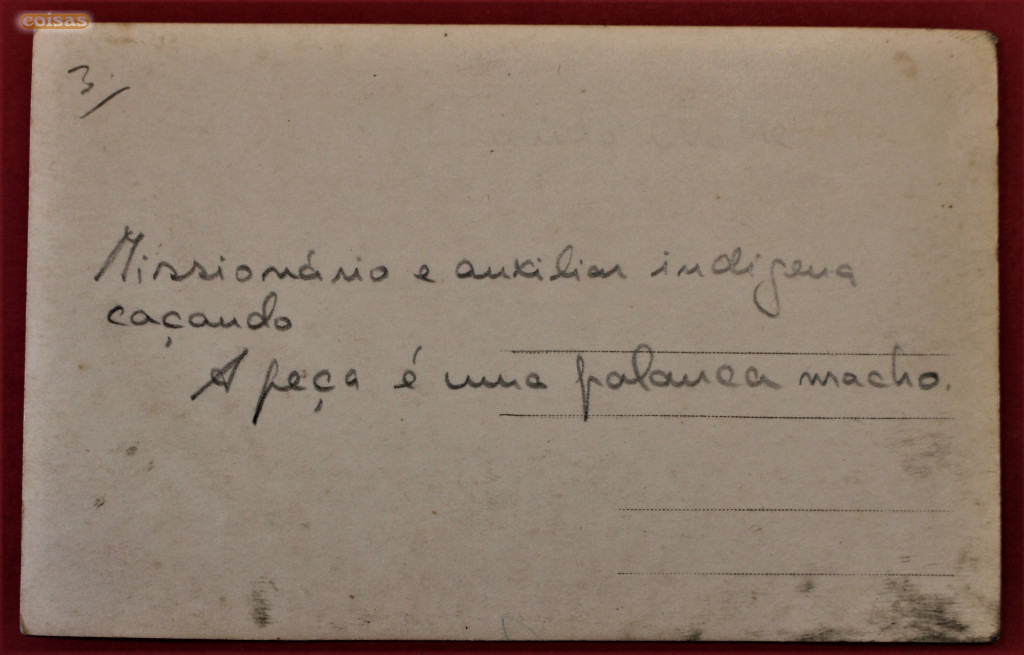 coisas
3.
Missionário e auxiliar indigena
caçando
A peça é uma palanca macho.